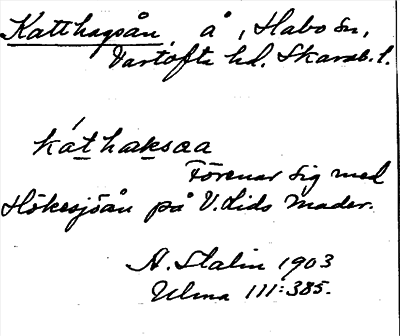 Katthagsån, å, Habo sn,
Vartofta hd. Skarab. l.
káthaksaa
Förenar sig med
Hökesjöån på V. Lids Mader.
A. Stalin 1903
Ulma 111:385.